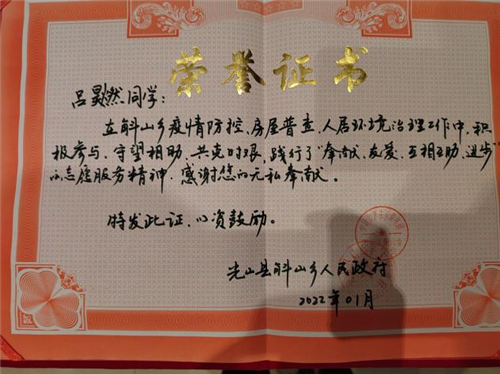 荣誉证书
吕昊然同学：
在斛山乡疫情防控、房屋普查、人居环境治理工作中，积
极参与、守望相助、共克时艰，践行了“奉献、友爱、互相互助、进步”
的志愿服务精神，感谢您的无私奉献。
特发此证，以资鼓励。
光山县斛山乡人民政府
2022年01月